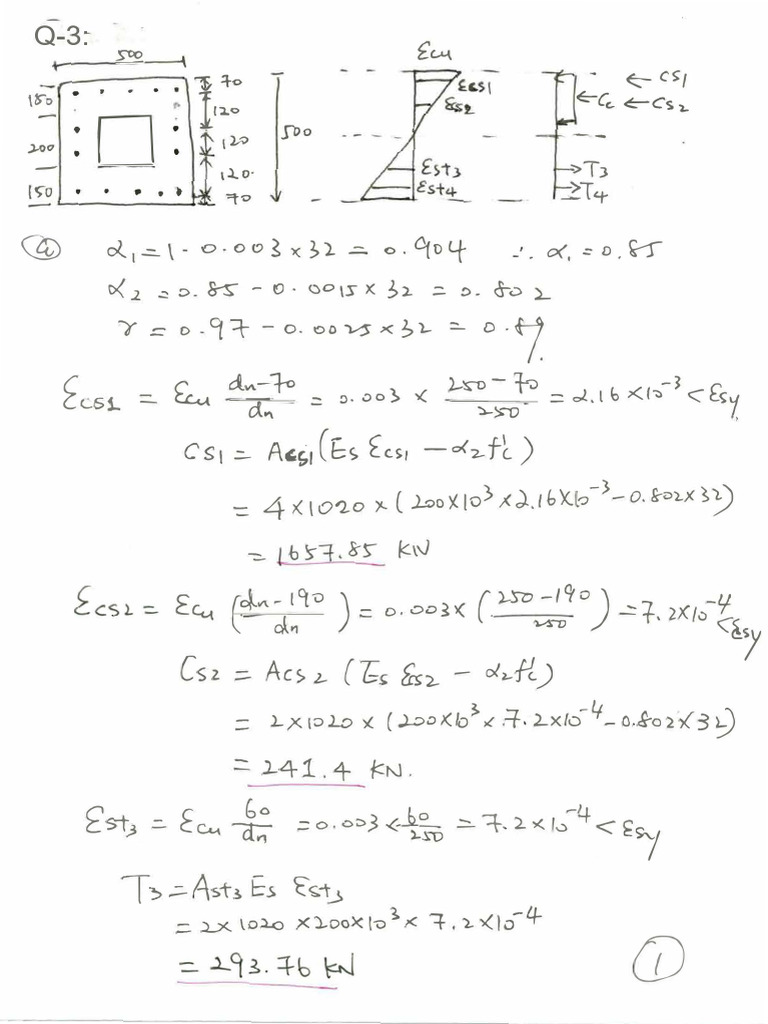 Q-3:
500
150
200
150
70
120
120
120.
70
500
Ɛcu
Ɛcs1
Ɛs2
Ɛst3
Ɛst4
← CS1
← Cc ← CS2
→ T3
→ T4
ⓐ α1 = 1 - 0.003 × 32 = 0.904 ∴ α1 = 0.85
α2 = 0.85 - 0.0015 × 32 = 0.802
γ = 0.97 - 0.0025 × 32 = 0.89
Ɛcs1 = Ɛcu (dn-70)/dn = 0.003 × (250-70)/250 = 2.16 × 10⁻³ < Ɛsy
CS1 = Acs1 (Es Ɛcs1 - α2f'c)
= 4 × 1020 × (200×10³ × 2.16×10⁻³ - 0.802×32)
= 1657.85 KN
Ɛcs2 = Ɛcu ((dn-190)/dn) = 0.003 × ((250-190)/250) = 7.2×10⁻⁴ < Ɛsy
Cs2 = Acs2 (Es Ɛs2 - α2f'c)
= 2 × 1020 × (200×10³ × 7.2×10⁻⁴ - 0.802×32)
= 241.4 KN.
Ɛst3 = Ɛcu 60/dn = 0.003 × 60/250 = 7.2×10⁻⁴ < Ɛsy
T3 = Ast3 Es Ɛst3
= 2 × 1020 × 200×10³ × 7.2×10⁻⁴
= 293.76 KN
①